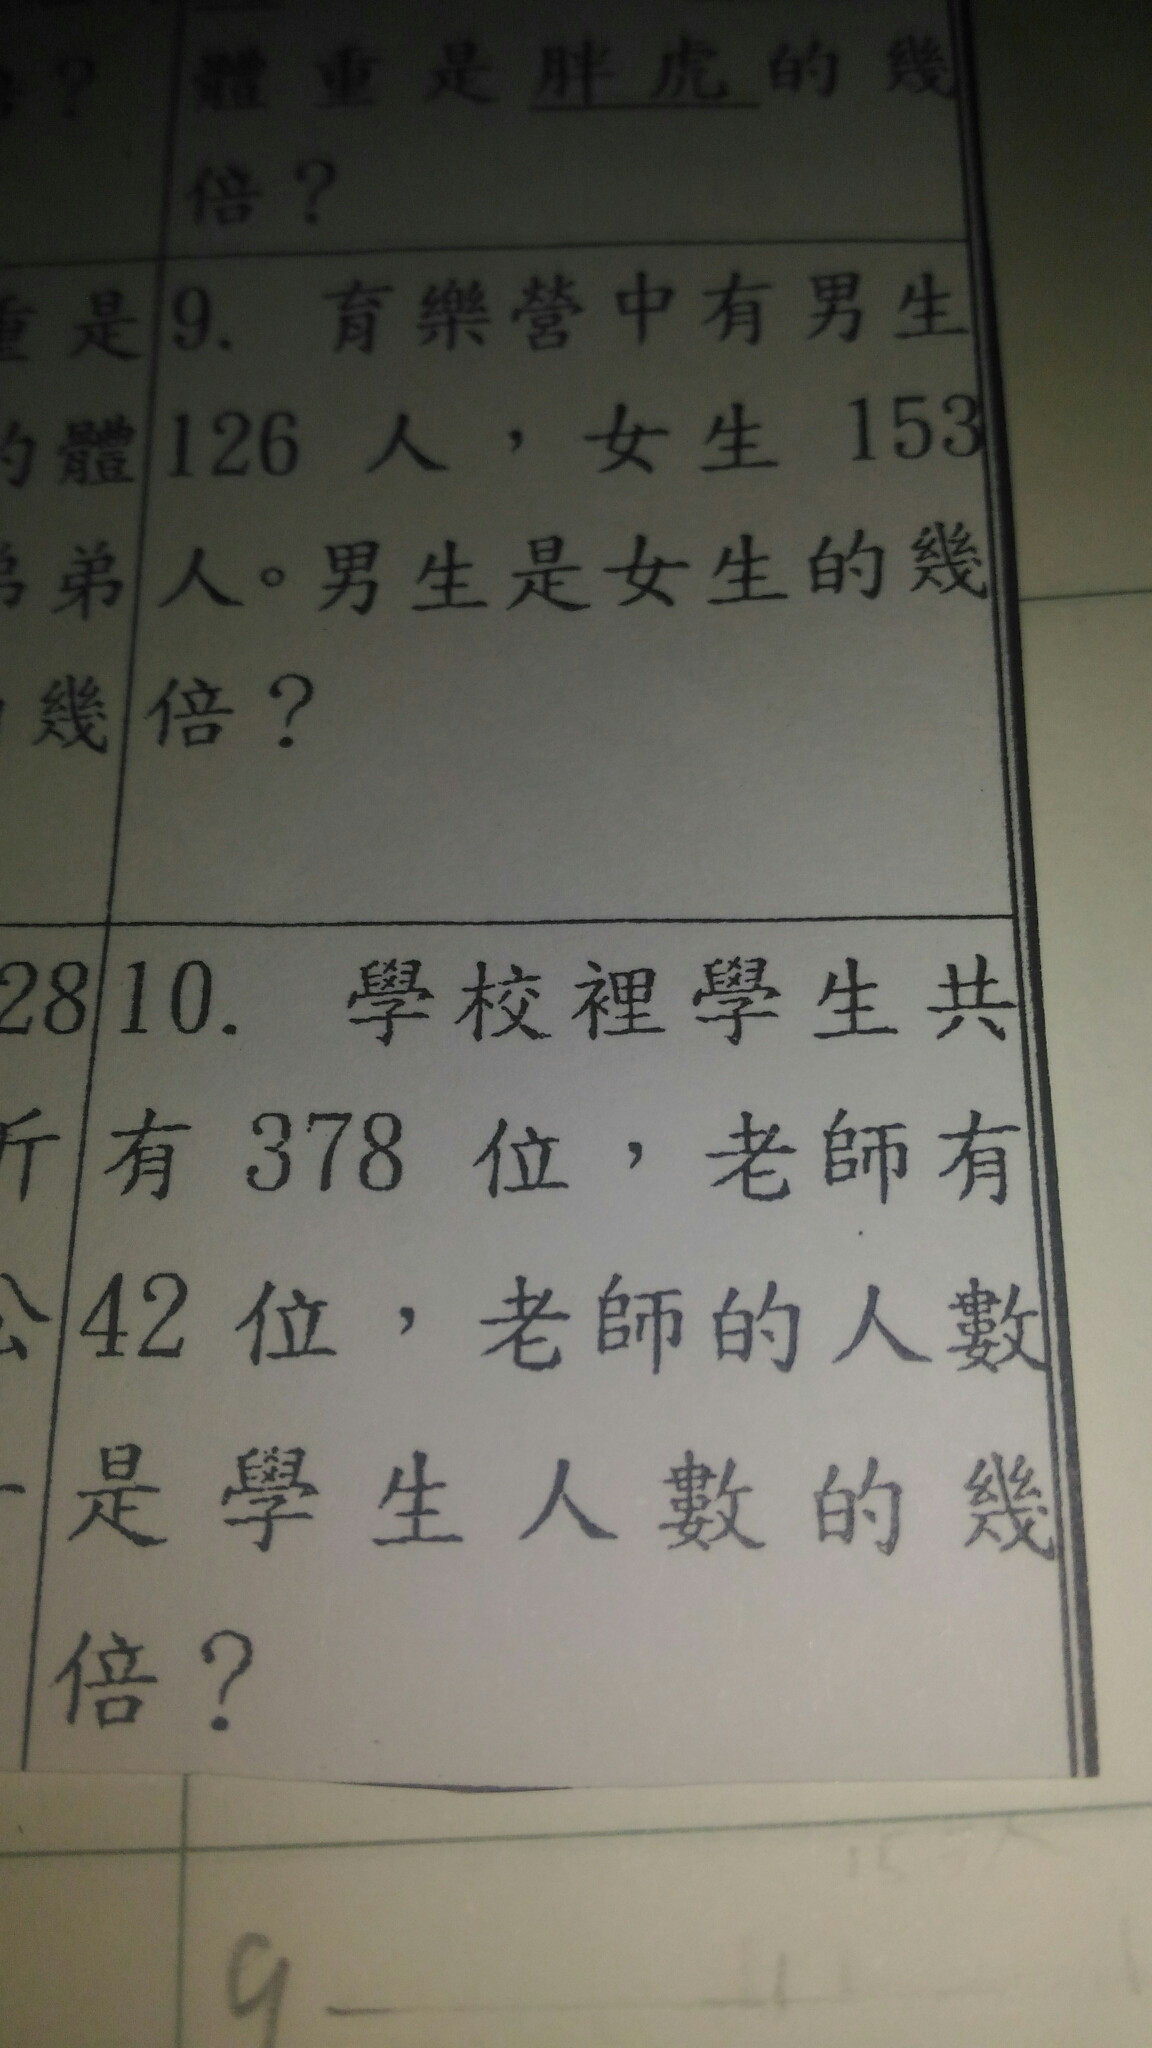 體重是胖虎的幾
倍？
重是
的體
弟弟
幾
9. 育樂營中有男生
126 人，女生 153
人。男生是女生的幾
倍？
28
斤
公
10. 學校裡學生共
有 378 位，老師有
42 位，老師的人數
是學生人數的幾
倍？
9